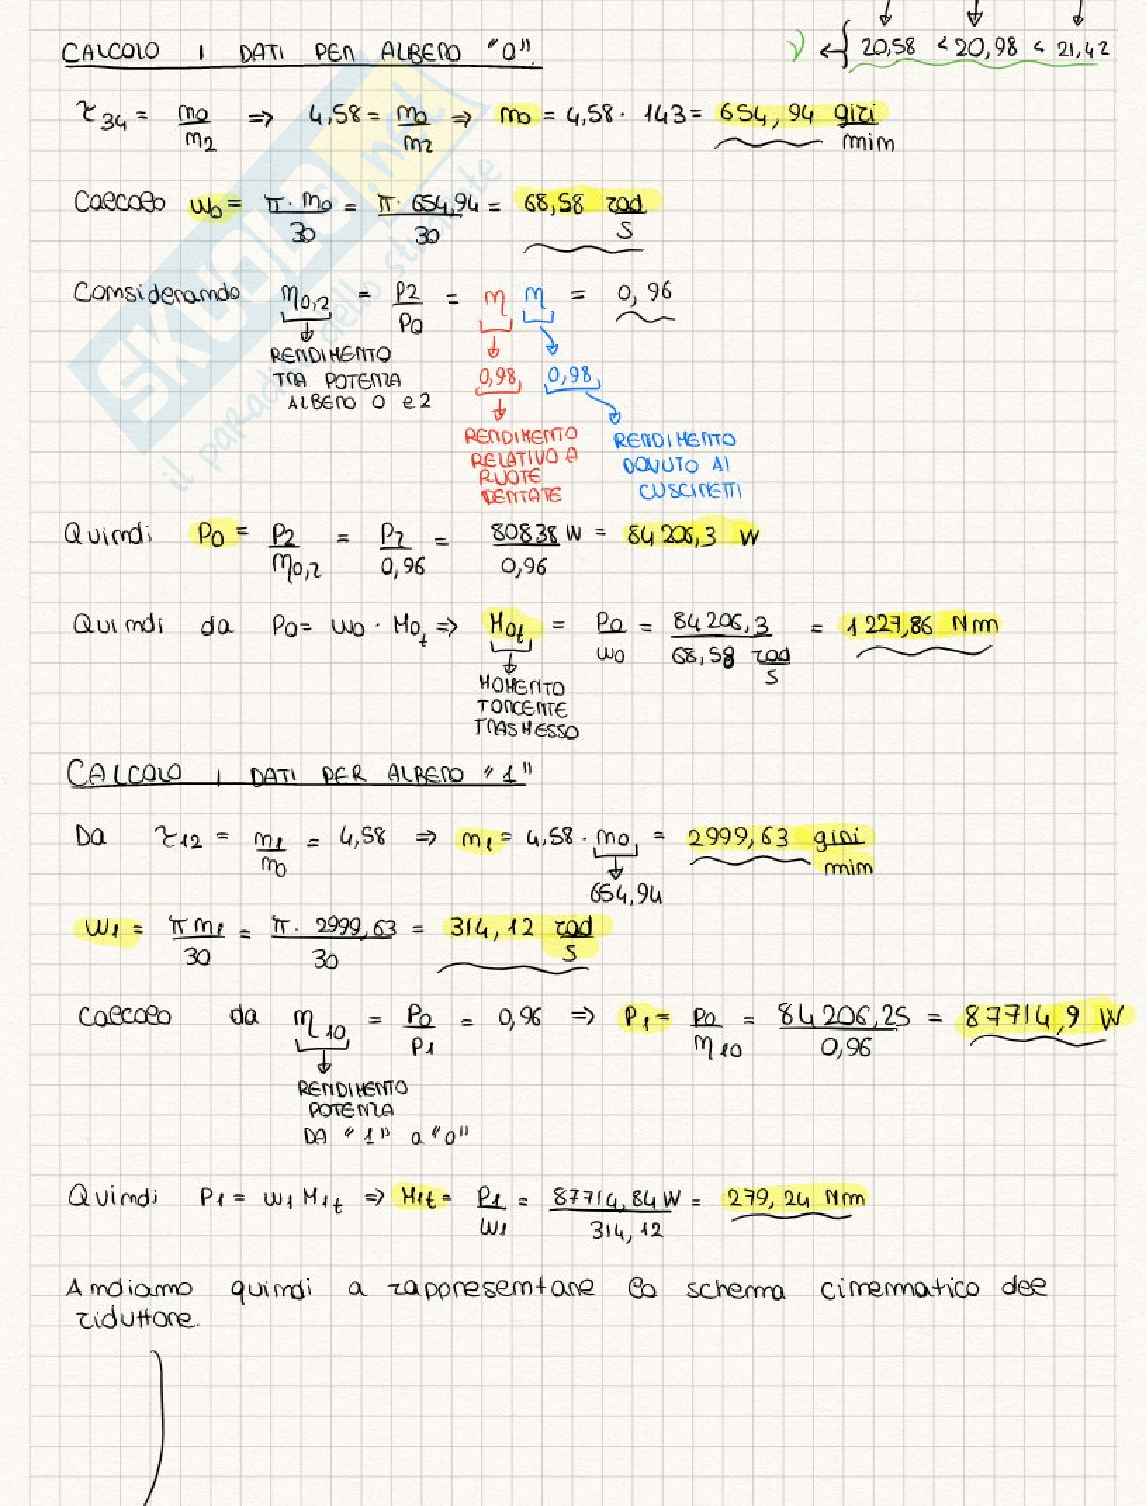 20,58 < 20,98 < 21,42
CALCOLO I DATI PER ALBERO "0".
τ34 = n0/n2 ⇒ 4,58 = n0/n2 ⇒ n0 = 4,58 · 143 = 654,94 giri/min
Calcolo ω0 = π·n0/30 = π·654,94/30 = 68,58 rad/s
Considerando η0,2 = P2/P0 = η η = 0,96
RENDIMENTO
TRA POTENZA
ALBERO 0 e 2
0,98 0,98
RENDIMENTO
RELATIVO A
RUOTE
DENTATE
RENDIMENTO
DOVUTO AI
CUSCINETTI
Quindi P0 = P2/η0,2 = P2/0,96 = 80838 W/0,96 = 84206,3 W
Quindi da P0 = ω0 · M0t ⇒ M0t = P0/ω0 = 84206,3/68,58 rad/s = 1227,86 Nm
MOMENTO
TORCENTE
TRASMESSO
CALCOLO I DATI PER ALBERO "1"
Da τ12 = n1/n0 = 4,58 ⇒ n1 = 4,58 · n0 = 2999,63 giri/min
654,94
ω1 = π n1/30 = π · 2999,63/30 = 314,12 rad/s
Calcolo da η10 = P0/P1 = 0,96 ⇒ P1 = P0/η10 = 84206,25/0,96 = 87714,9 W
RENDIMENTO
POTENZA
DA "1" a "0"
Quindi P1 = ω1 M1t ⇒ M1t = P1/ω1 = 87714,84 W/314,12 = 279,24 Nm
Andiamo quindi a rappresentare lo schema cinematico del
riduttore.
SKUOLA.net
il paradiso dello studente